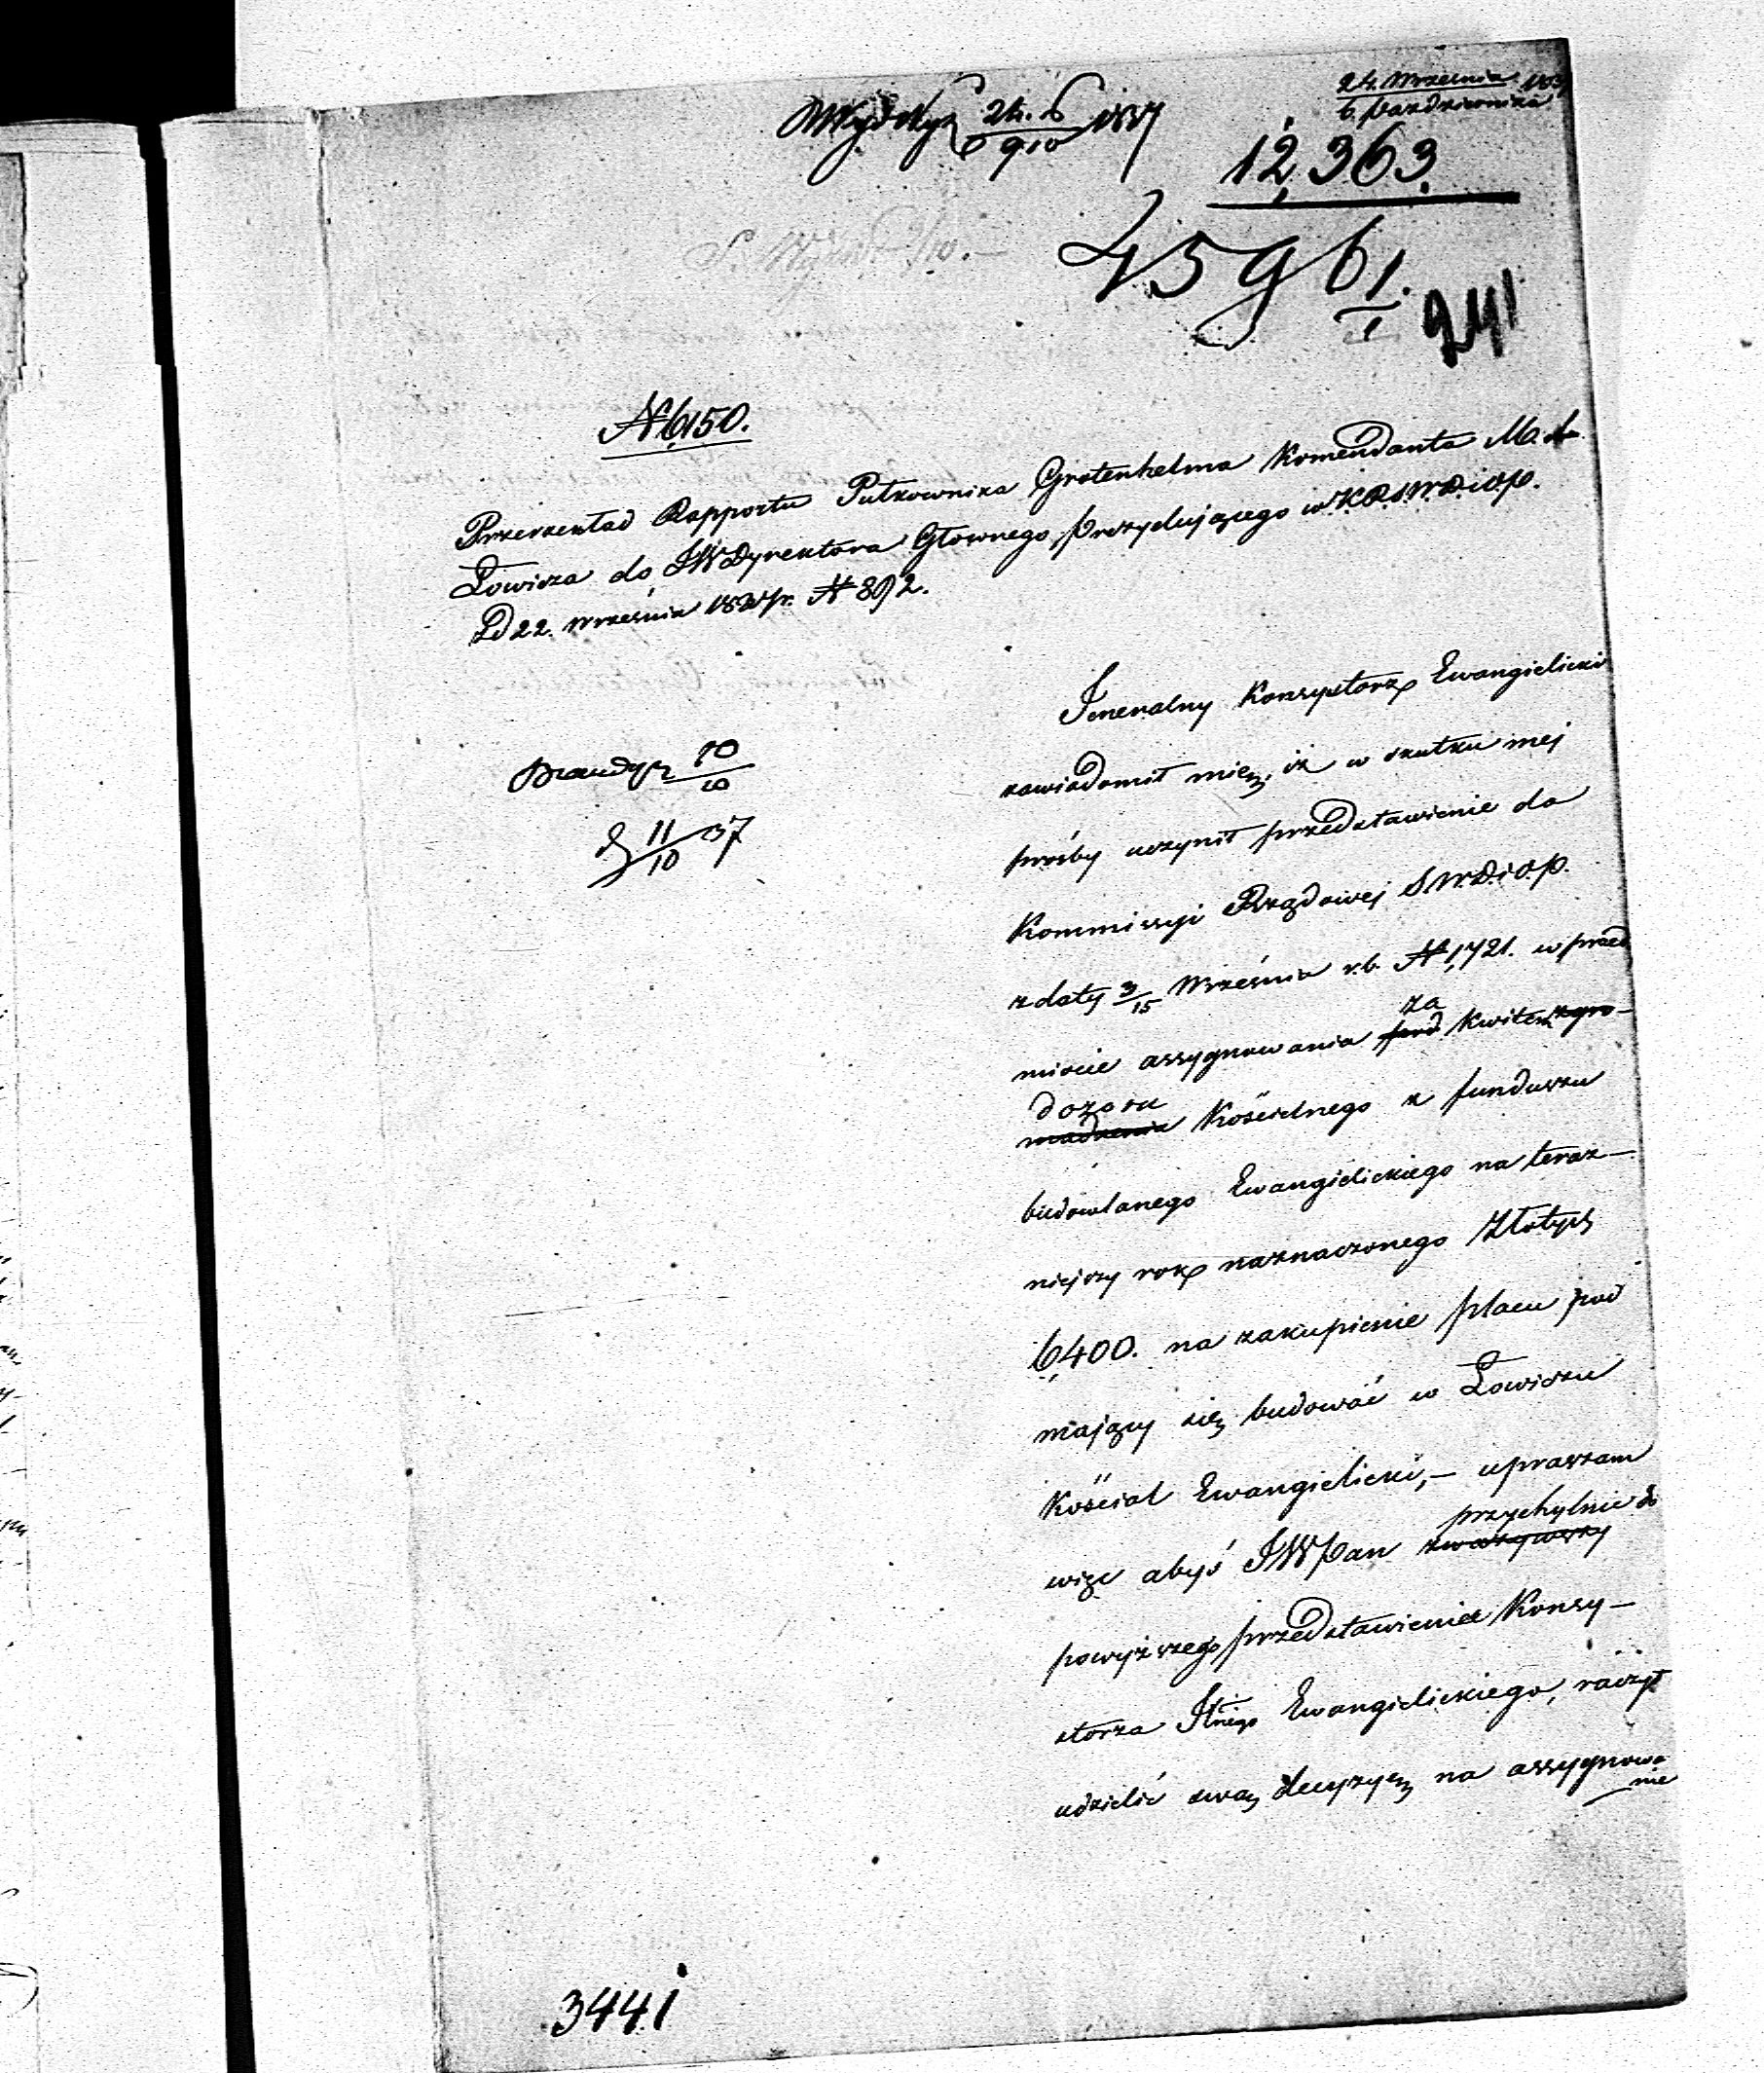 24. Września
6. Października
12,363.
45961.
1
241
N 6,150.
Przerzekład Rapportu Pułkownika Grotenhelma Komendanta M.
Łowicza do JW Dyrektora Głownego Prezydującego w K.R.S.W.D.i O.P.
22. Września N 892.
Jeneralny Konsystorz Ewangielicki
zawiadomił mię, iż w skutku mej
prośby uczynił przedstawienie do
Kommissyi Rządowej S.W.D. i O.P.
z daty 3/15 Września r.b. N 1,721. w przed
za
miocie assygnowania Kwitem zgro-
dozoru
madzenia Kościelnego z funduszu
budowlanego Ewangielickiego na teraz-
niejszy rok naznaczonego Złotych
6,400. na zakupienie placu pod
mający się budować w Łowiczu
Kościoł Ewangielicki, - upraszam
przychylnie do
więc abyś JW Pan zważywszy
powyższego przedstawienia Konsy-
storza Ewangielickiego, raczył
udzielić swą decyzyę na assygnowa
nie
10
11/10 37
3441